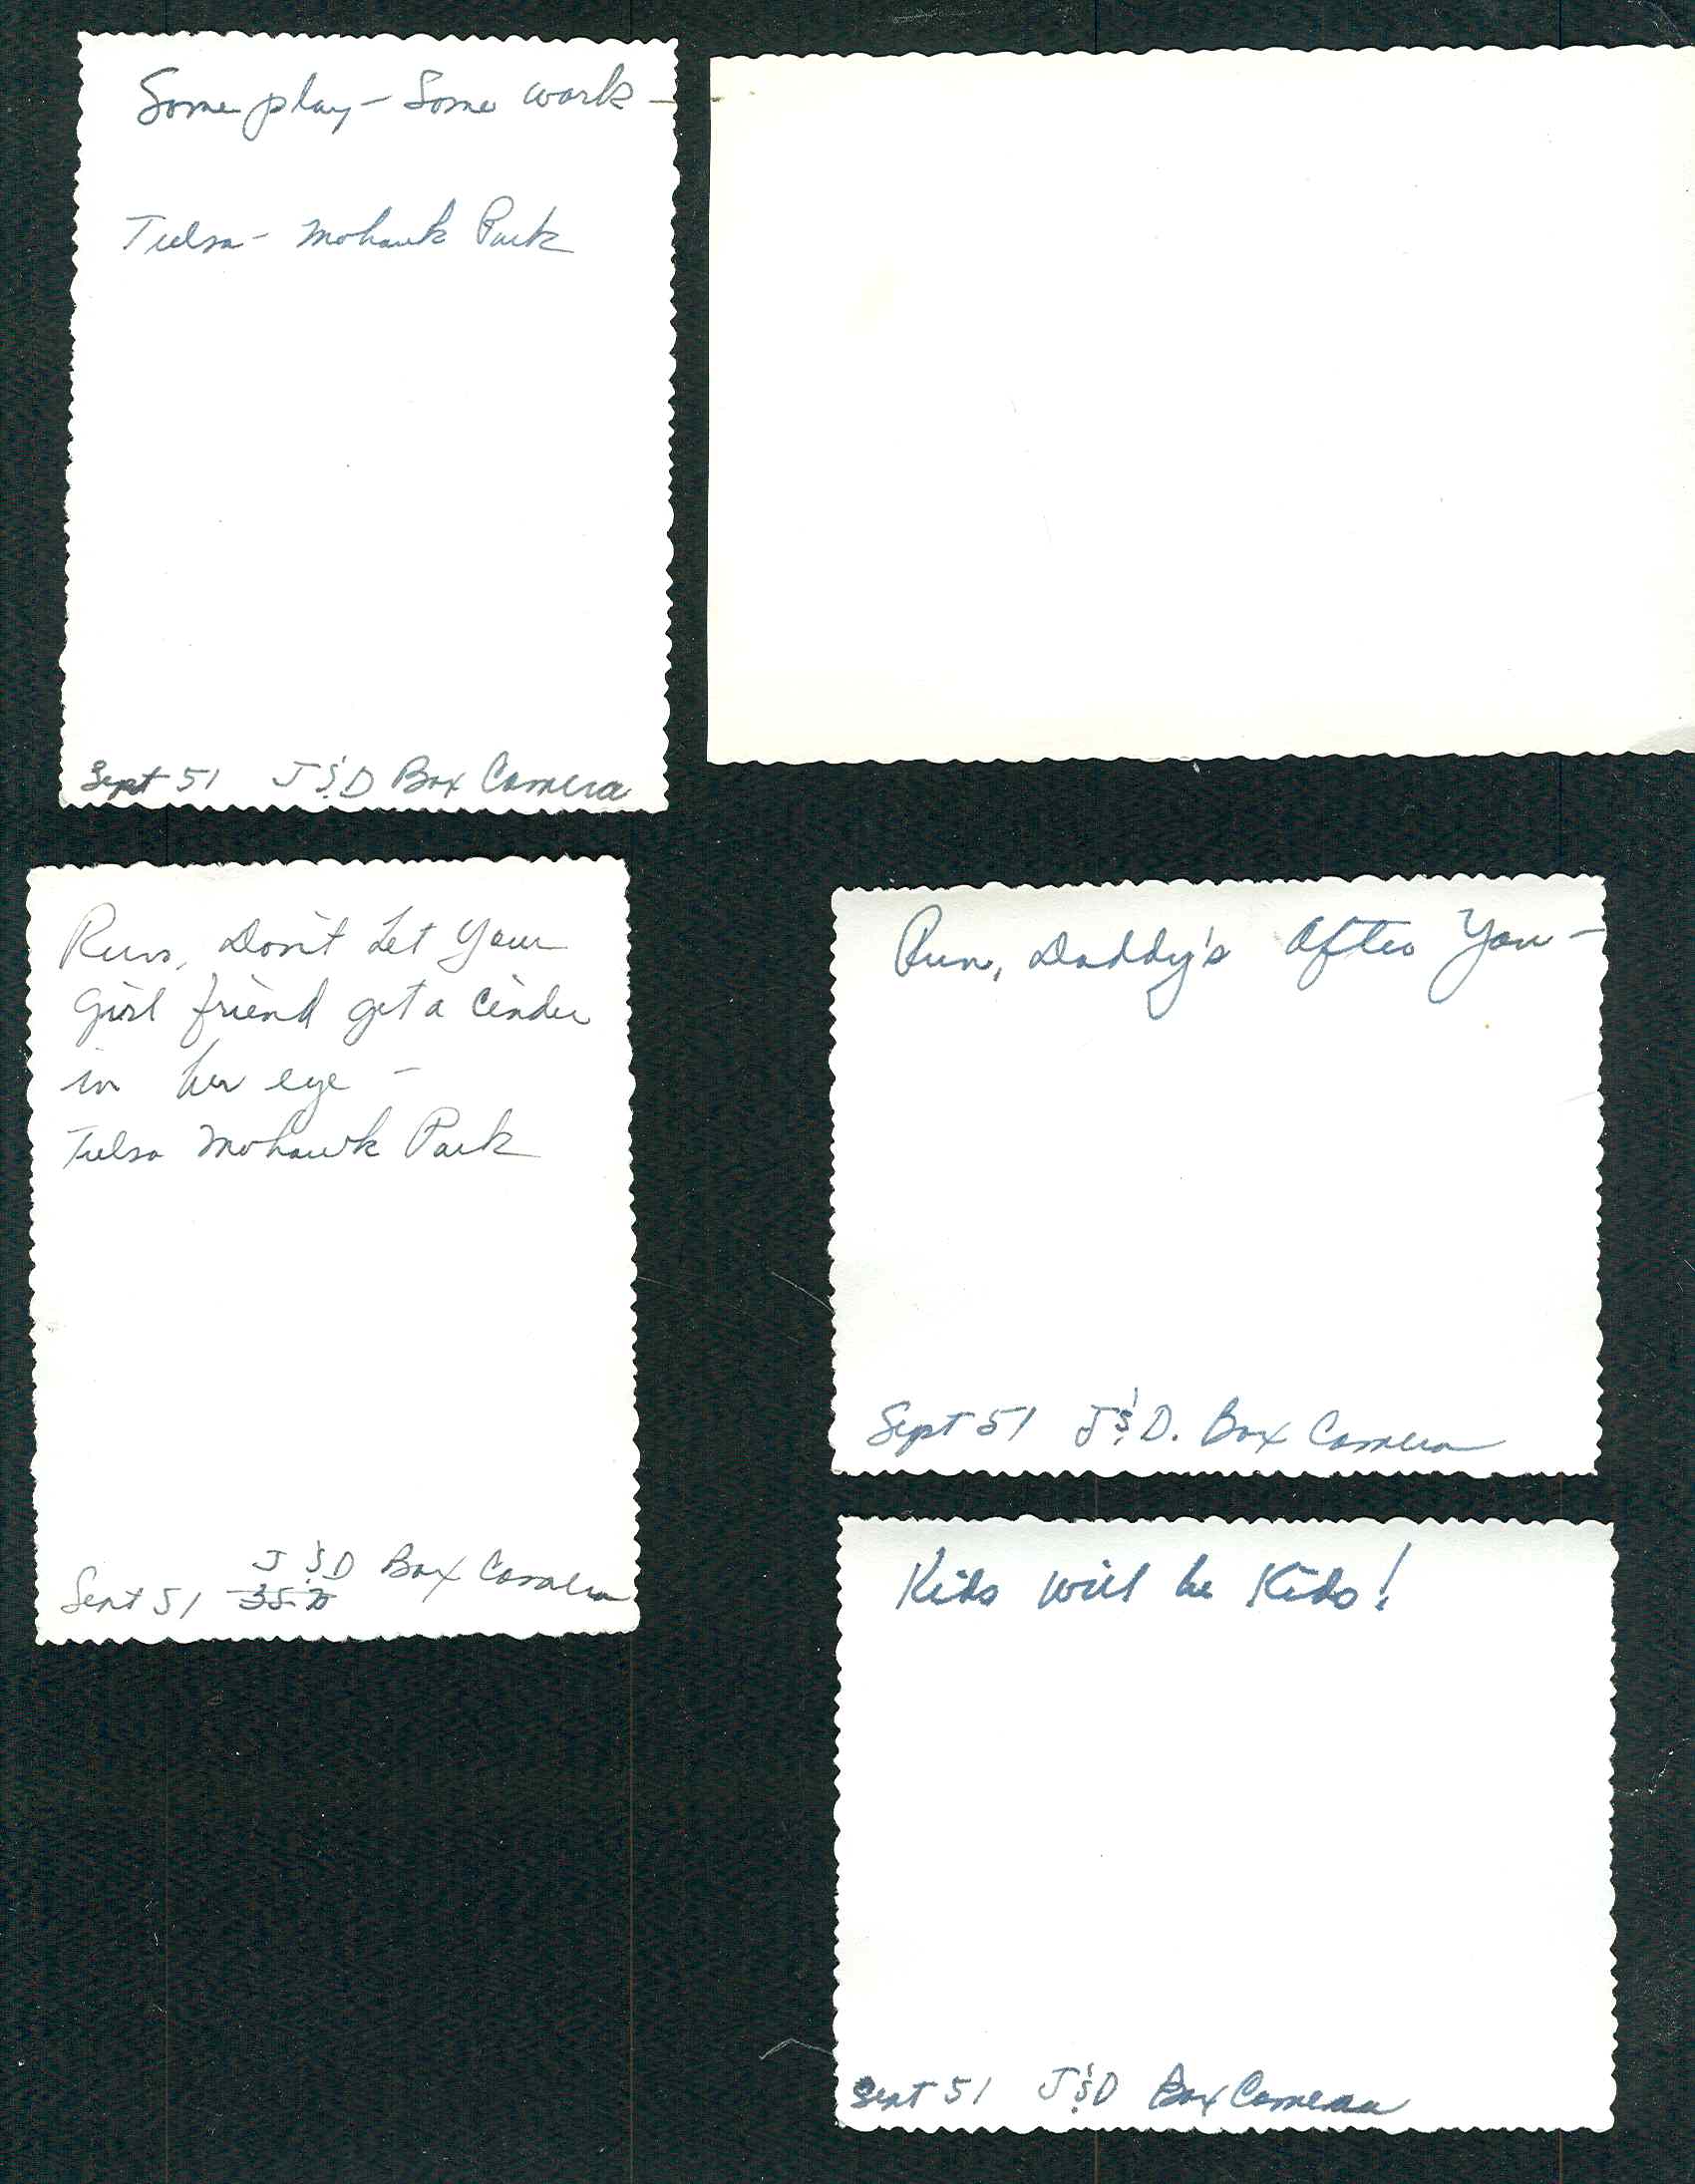 Some play - Some work -
Tulsa - Mohawk Park
Sept 51 J & D Box Camera
Russ, Don't Let Your
girl friend get a cinder
in her eye -
Tulsa Mohawk Park
J & D Box Camera
Sept 51 35
Run, Daddy's After You -
Sept 51 J & D. Box Camera
Kids will be Kids!
Sept 51 J & D Box Camera